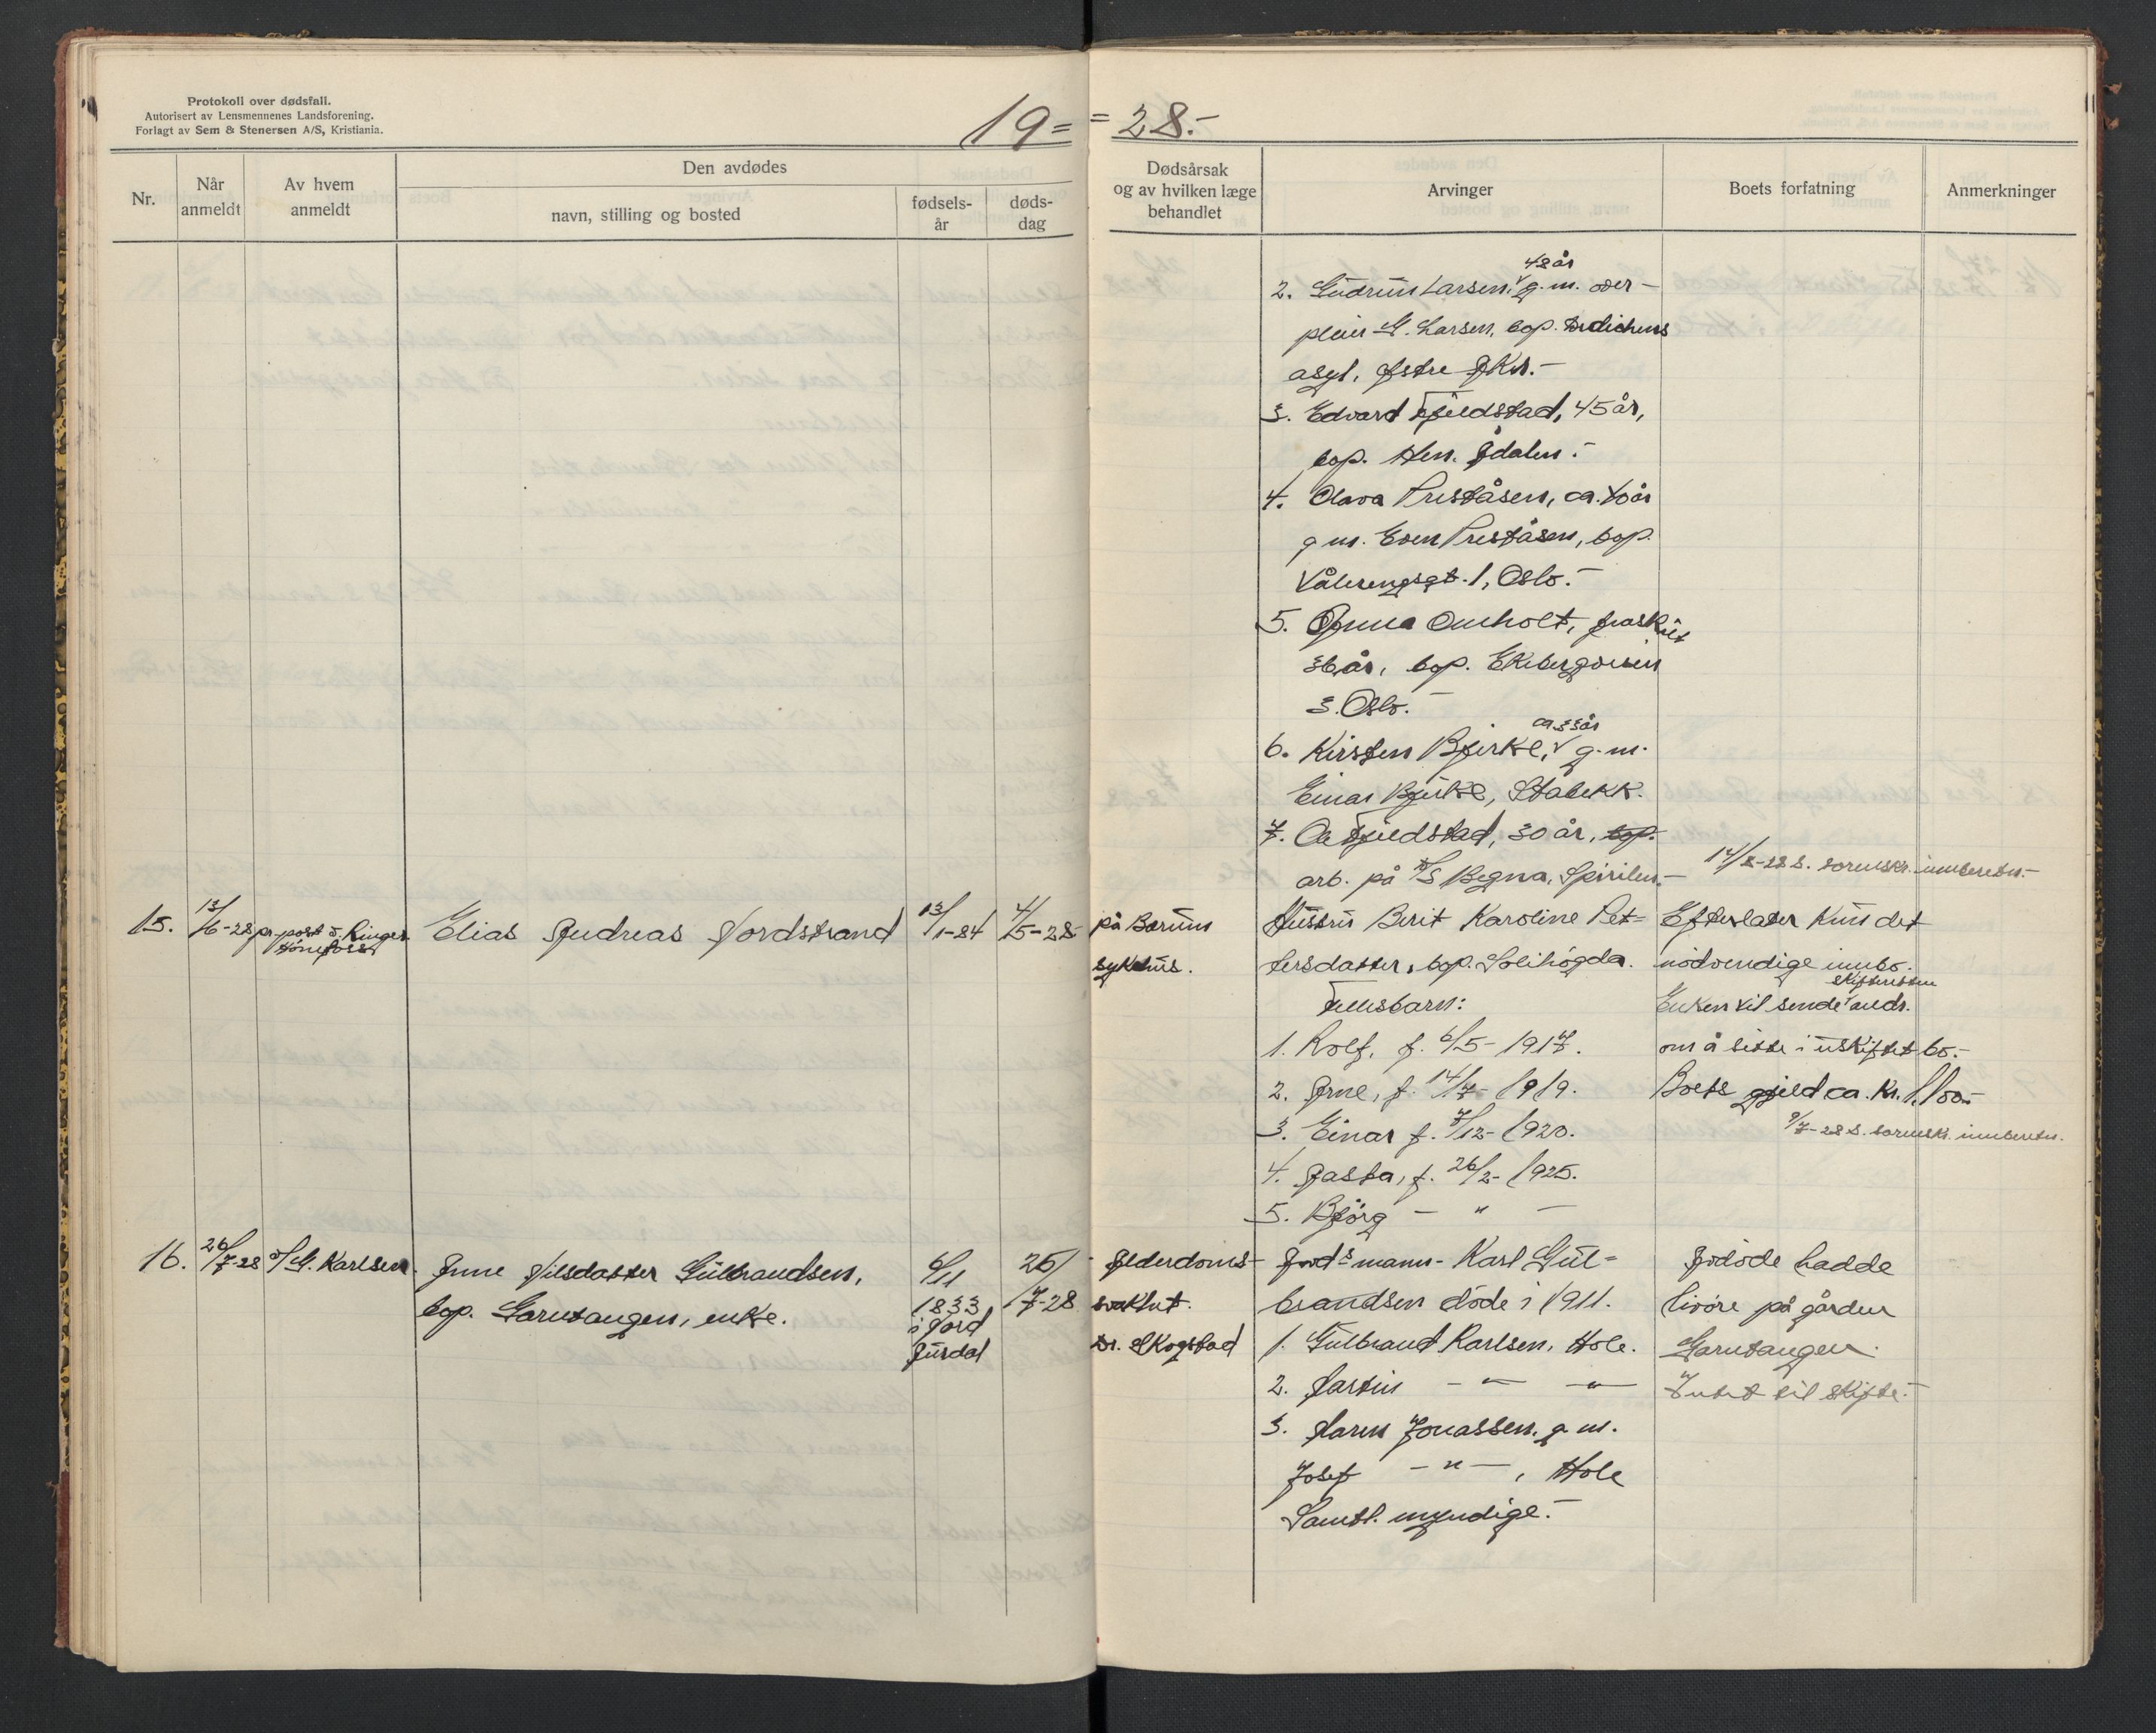 Protokoll over dødsfall.
Autorisert av Lensmennenes Landsforening.
Forlagt av Sem & Stenersen A/S, Kristiania.
19= =28.-
Nr.
Når anmeldt
Av hvem anmeldt
Den avdødes
navn, stilling og bosted
fødsels-år
døds-dag
Dødsårsak og av hvilken læge behandlet
Arvinger
Boets forfatning
Anmerkninger
48 år
2. Gudrun Larsen, g.m. over-
pleier G. Larsen, bop. Dedichens
asyl, Østre Aker.-
3. Edvard Fjeldstad, 45 år,
bop. Hen. Ådalen.-
4. Olava Preståsen, ca. 40 år
g.m. Even Preståsen, bop.
Vålerengsgt. 1, Oslo.-
5. Anna Omholt, fraskilt
36 år, bop. Ekebergveien
3. Oslo.-
ca. 33 år
6. Kirsten Bjerke, g.m.
Einar Bjerke, Stabekk.
7. Ole Fjeldstad, 30 år, bop.
arb. på D/S Begna, Spirilen.-
14/8-28 s. sorenskr. innberetn.-
15. 13/6-28 pr. post o. Ringer. Hönefoss
Elias Andreas Nordstrand
13/1-84
4/5-28
på Bærum
sykehus.
Hustru Berit Karoline Pet=
tersdatter, bop. Solihögda.
Fellesbarn:
1. Rolf, f. 6/5-1917.
2. Arne, f. 14/7-1919.
3. Einar f. 7/12-1920.
4. Aasta, f. 26/2-1925.
5. Björg - " -
Efterlater kun det
nödvendige innbo.
skifteretten
Enken vil sende andr.
om å sitte i uskiftet bo.-
Boets gjeld ca. kr. 1.100.-
9/7-28 s. sorenskr. innberetn.
16. 26/7-28 G. Karlsen.
Anne Nilsdatter Gulbrandsen,
bop. Garntangen, enke.
6/11
1833
i Nord
Aurdal
25/
7-28
Alderdoms-
svakhet.
Dr. Skogstad
Avd.s mann - Karl Gul=
brandsen döde i 1911.
1. Gulbrand Karlsen, Hole.
2. Martin - " - - " -
3. Maren Jonassen, g.m.
Josef - " -, Hole
Samtl. myndige.-
Avdöde hadde
livöre på gården
Garntangen.
Intet til skifte.-